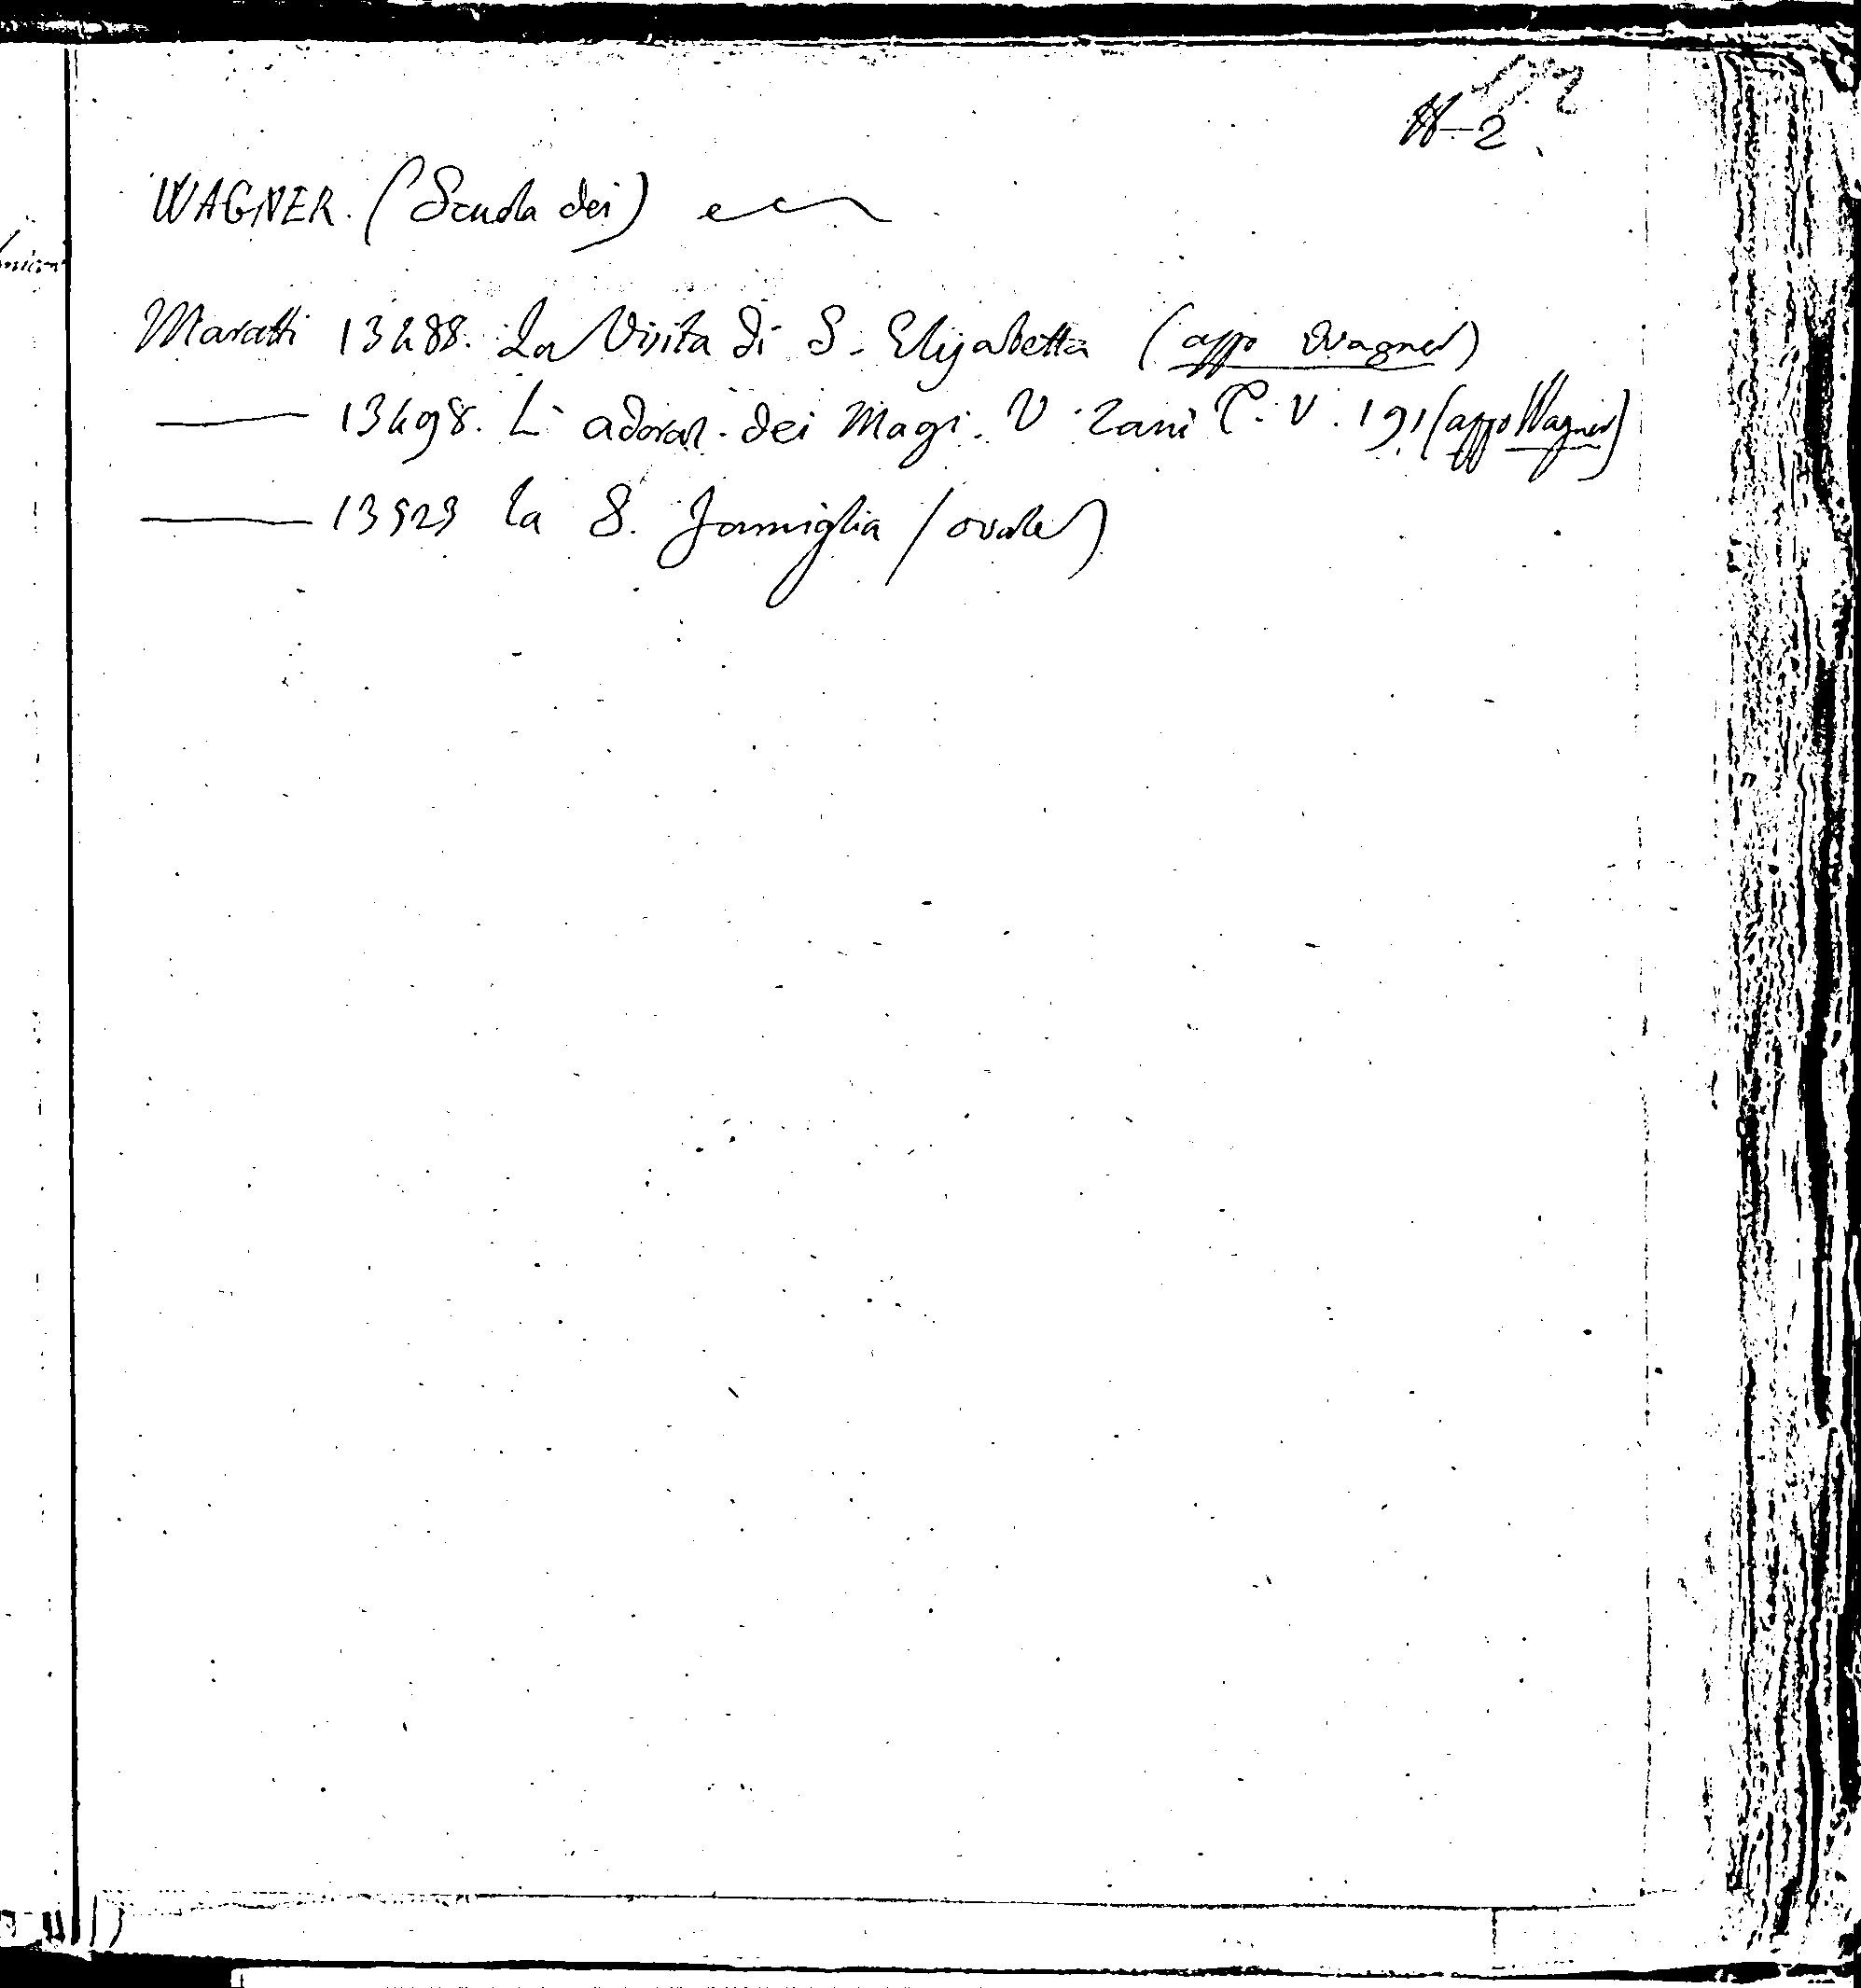 2
WAGNER. (Scuola dei)
Maratti 13488. La Visita di S. Elisabetta (appo Wagner)
—— 13498. L' adoraz. dei Magi. V. Zani P. V. 191 (appo Wagner)
—— 13529 la S. famiglia (ovale)